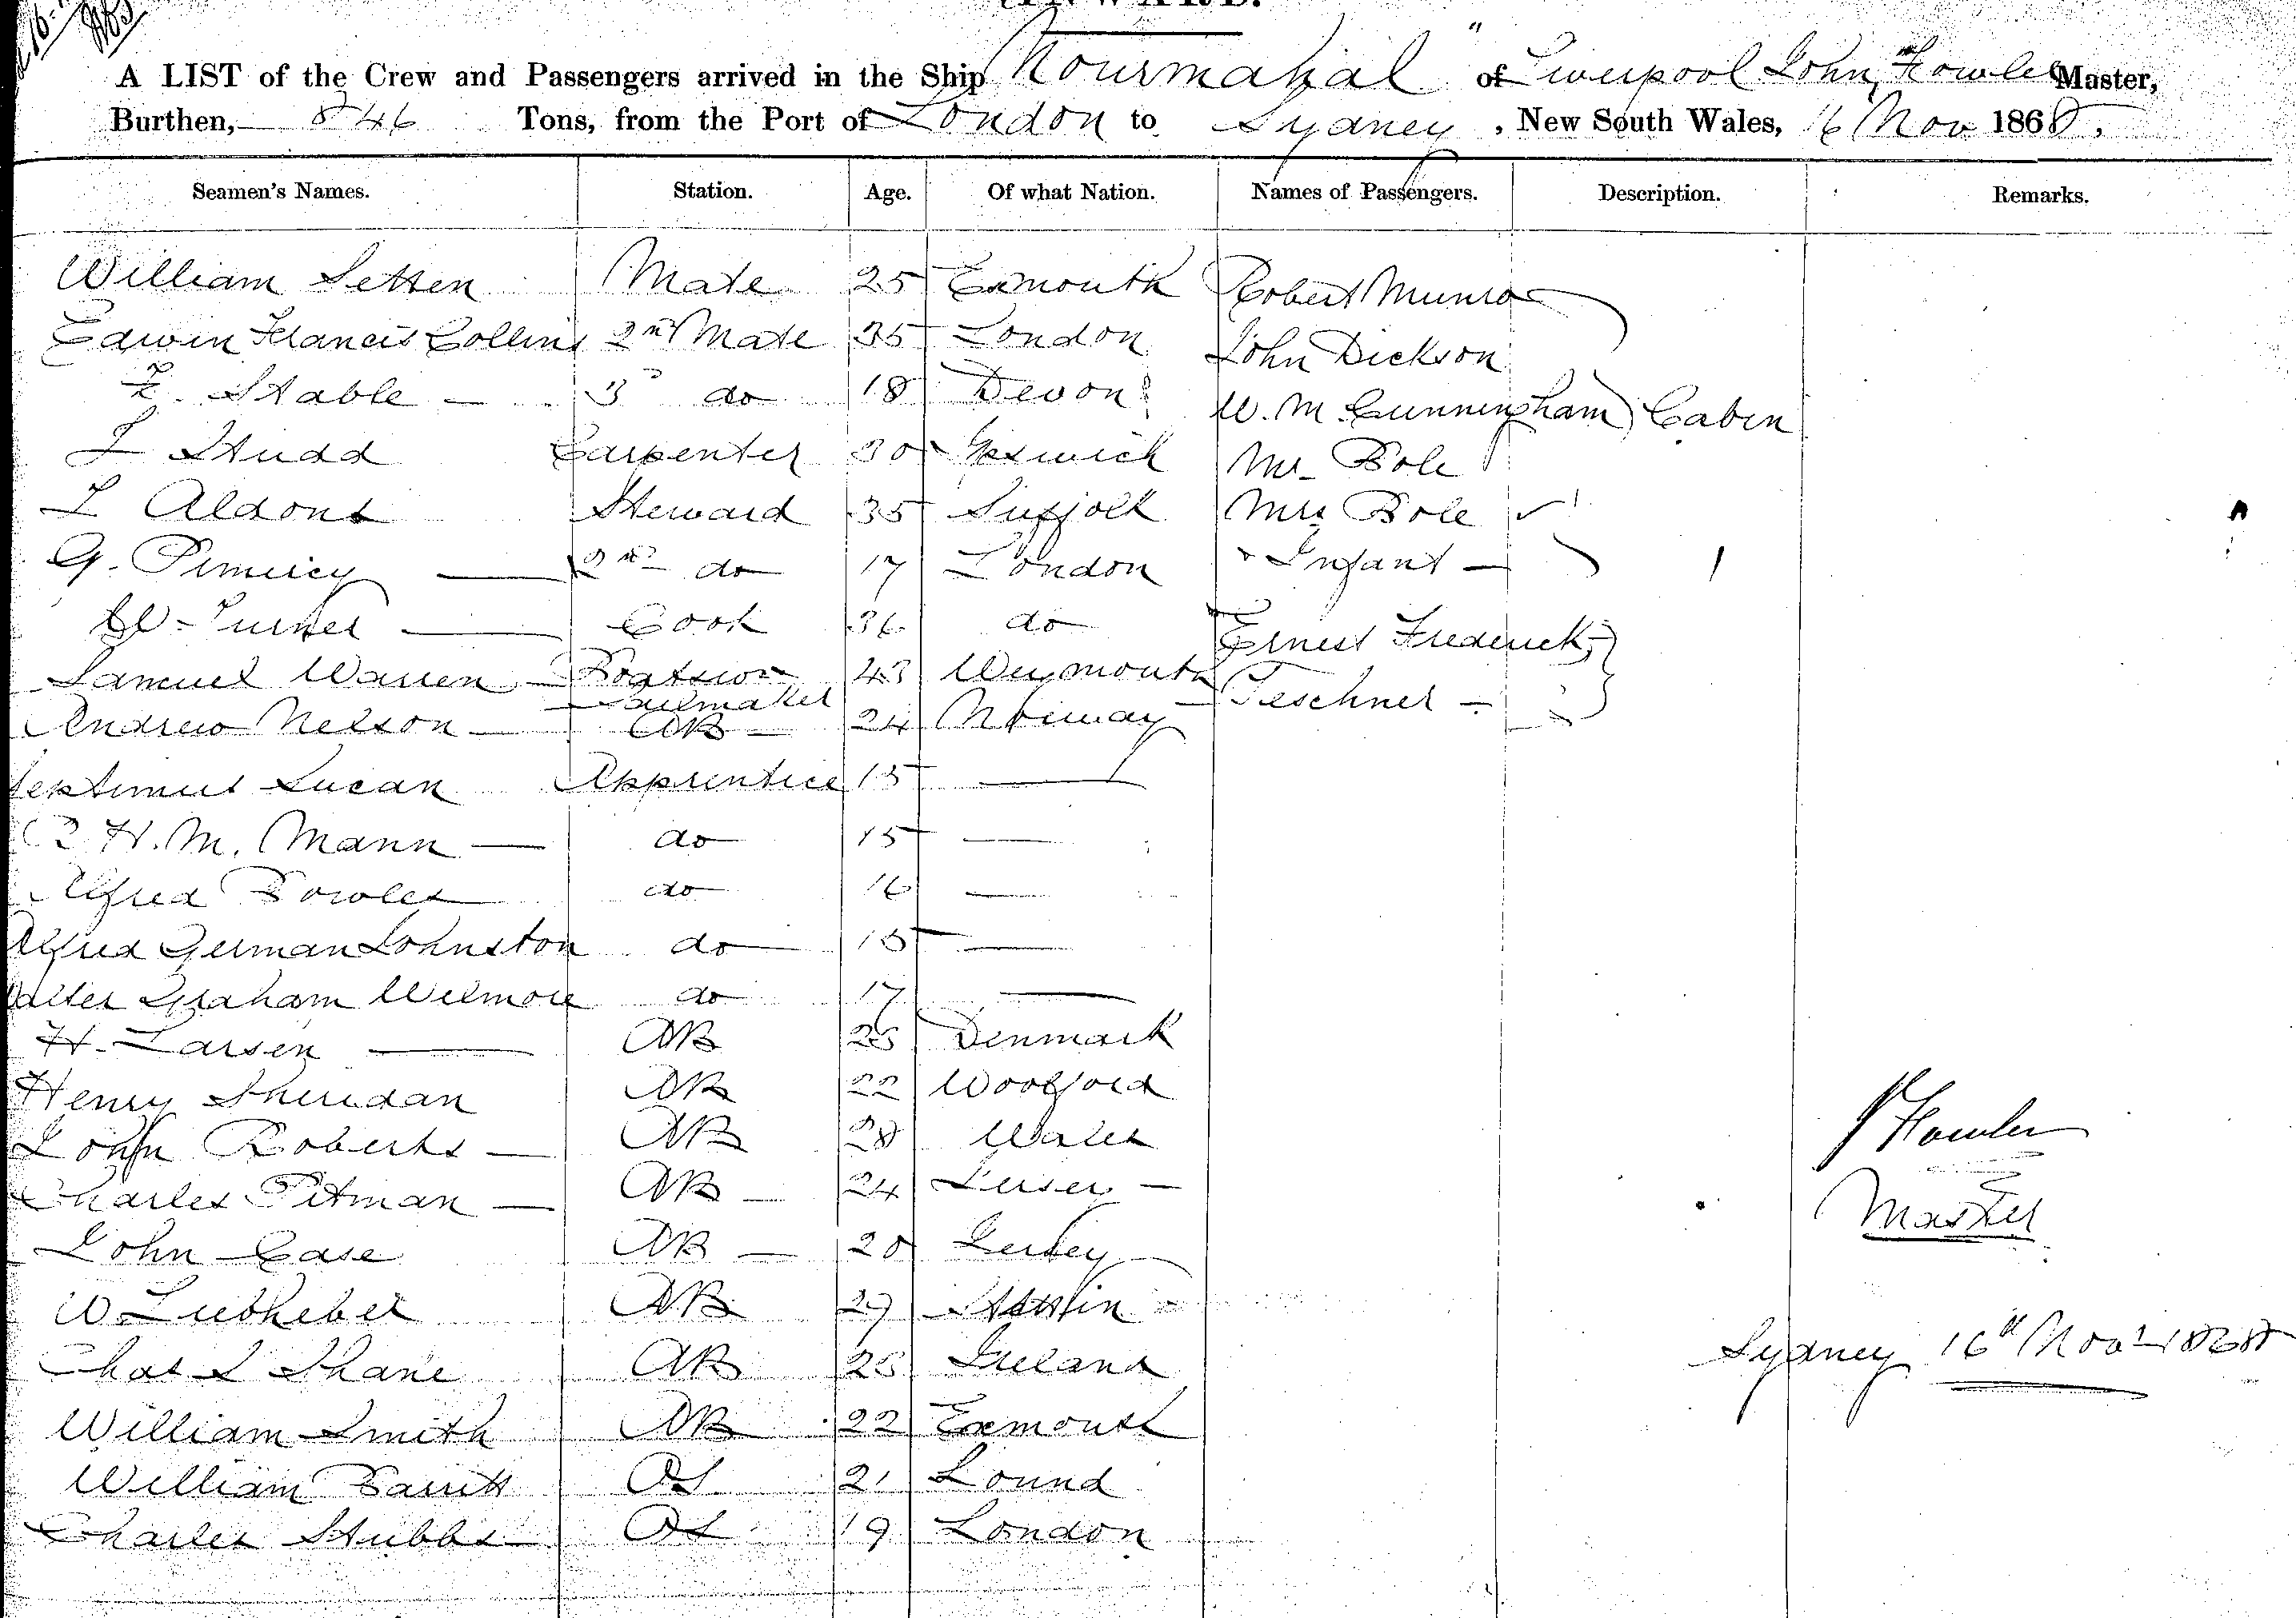 A LIST of the Crew and Passengers arrived in the Ship "Nourmahal" of Liverpool John Fowler Master,
Burthen, 846 Tons, from the Port of London to Sydney, New South Wales, 16 Nov 1868.
Seamen's Names. Station. Age. Of what Nation. Names of Passengers. Description. Remarks.
William Setten Mate 25 Exmouth Robert Munro
Edwin Francis Collins 2nd Mate 35 London John Dickson
Stable 3 do 18 Devon W. M. Cunningham Cabin
Studd Carpenter 30 Ipswich Mr Bole
Aldous Steward 35 Suffolk Mrs Bole
G. 2nd do 17 London + Infant
W. Turner Cook 36 do Ernest Frederick
Samuel Warren Boatswn 43 Weymouth Teschner
Sailmaker
Andrew Nelson AB 24 Norway
Septimus Lucan Apprentice 15
H. M. Mann do 15
Alfred Fowler do 16
Alfred German Johnston do 15
Walter Graham Welmore do 17
H. Larsen AB 25 Denmark
Henry Sheridan AB 22 Woolford
John Roberts AB 28 Wales
Charles Pitman AB 24 Jersey
John Case AB 20 Jersey
W AB 29 Stettin
Chas J Shane AB 25 Ireland
William Smith AB 22 Exmouth
William Barrett OS 21 Lound
Charles Stubbs OS 19 London
J Fowler
Master
Sydney 16th Novr 1868